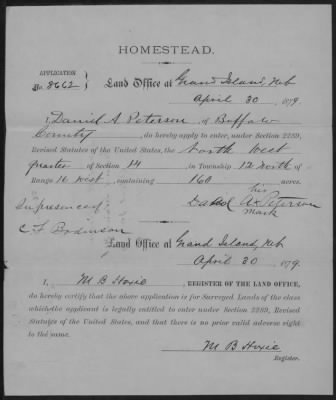 HOMESTEAD.
APPLICATION
No. 8662
Land Office at Grand Island, Neb
April 30 1879.
I, Daniel A Peterson, of Buffalo
County, do hereby apply to enter, under Section 2289,
Revised Statutes of the United States, the North West
quarter of Section 14 in Township 12 North of
Range 16 West, containing 160 acres.
his
In presence of Daniel A x Peterson
mark
C F Bodinson
Land Office at Grand Island, Neb
April 30 1879.
I, M B Hoxie, REGISTER OF THE LAND OFFICE,
do hereby certify that the above application is for Surveyed Lands of the class
which the applicant is legally entitled to enter under Section 2289, Revised
Statutes of the United States, and that there is no prior valid adverse right
to the same.
M B Hoxie
Register.